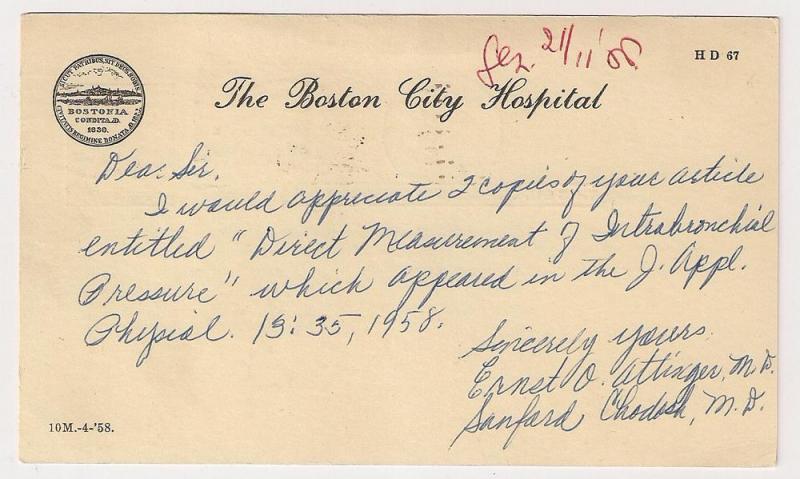 Gez. 21/11 '58.
HD 67
SICUT PATRIBUS, SIT DEUS NOBIS
BOSTONIA
CONDITA A.D.
1630.
CIVITATIS REGIMINE DONATA A.D. 1822
The Boston City Hospital
Dear Sir,
I would appreciate 2 copies of your article
entitled "Direct Measurement of Intrabronchial
Pressure" which appeared in the J. Appl.
Physiol. 13:35, 1958.
Sincerely yours
Ernst O. Attinger, M.D.
Sanford Chodosh, M.D.
10M.-4-'58.